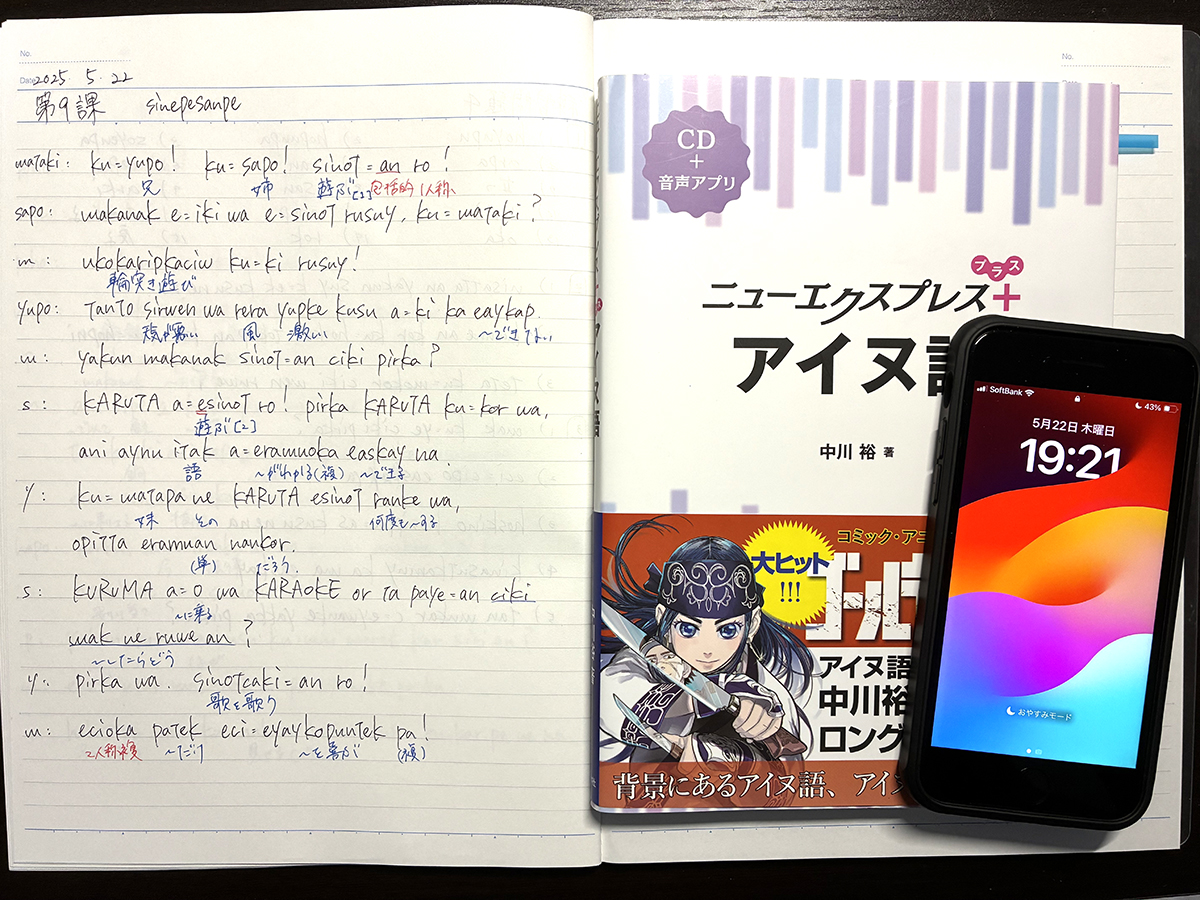 No.
Date 2025 5・22
第9課 sinepesanpe
mataki: ku=yupo! ku=sapo! sinot=an ro!
兄 姉 遊ぶ[2] 包括的1人称
sapo: makanak e=iki wa e=sinot rusuy, ku=mataki?
m: ukokaripkaciw ku=ki rusuy!
輪突き遊び
yupo: TANTO sirwen wa rera yupke kusu a=ki ka eaykap.
天気が悪い 風 激しい 〜できない
m: yakun makanak sinot=an ciki pirka?
s: KARUTA a=esinot ro! pirka KARUTA ku=kor wa,
遊ぶ[2]
ani aynu itak a=eramuoka easkay na.
語 〜がわかる(複) 〜できる
y: ku=matapa ne KARUTA esinot ranke wa,
妹 その 何度も〜する
opitta eramuan nankor.
(単) だろう.
s: KURUMA a=o wa KARAOKE or ta paye=an ciki
〜に乗る
mak ne ruwe an?
〜したらどう
y: pirka wa. sinotcaki=an ro!
歌を歌う
m: ecioka patek eci=eyaykopuntek pa!
2人称複 〜だけ 〜を喜ぶ (複)
No.
CD
+
音声アプリ
プラス
ニューエクスプレス+
アイヌ語
中川 裕 著
コミック・アニ
大ヒット
!!!
ゴールデ
アイヌ語
中川裕
ロング
背景にあるアイヌ語、アイヌ
SoftBank
43%
5月22日 木曜日
19:21
おやすみモード